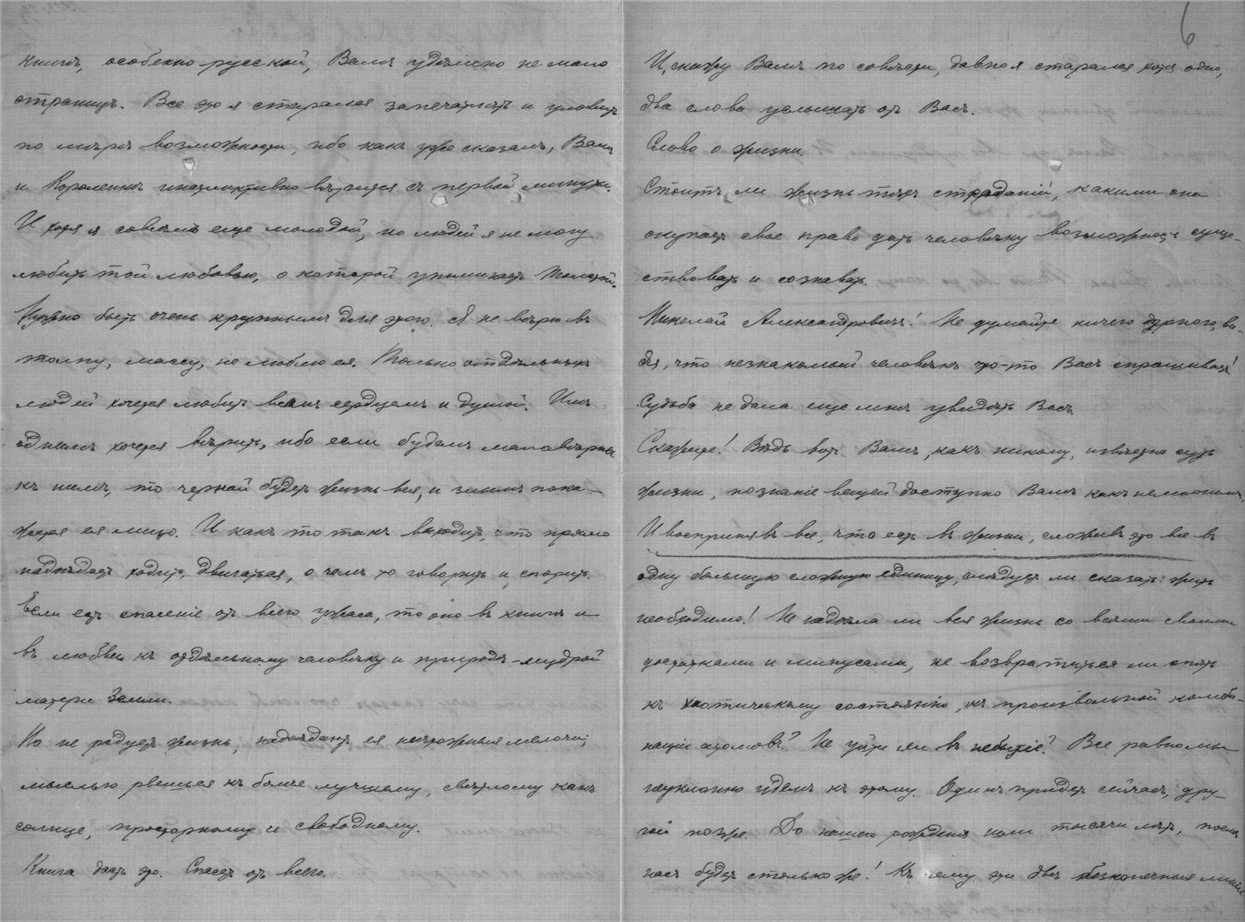 книгѣ, особенно русской, Вамъ удѣлено не мало
страницъ. Все это я старался запечатлѣть и уловить
по мѣрѣ возможности, ибо какъ уже сказалъ, Вамъ
и Короленкѣ инстинктивно вѣрится съ первой минуты.
И хотя я совсѣмъ еще молодой, но людей я не могу
любить той любовью, о которой упоминаетъ Толстой.
Нужно быть очень крупнымъ для этого. Я не вѣрю въ
толпу, массу, не люблю ея. Только отдѣльныхъ
людей хочется любить всѣмъ сердцемъ и душой. Имъ
однимъ хочется вѣрить, ибо если будемъ маловѣрны
къ нимъ, то черной будетъ жизнь вся, и злымъ пока-
жется ея лицо. И какъ то такъ выходитъ, что прямо
надоѣдаетъ ходить, двигаться, о чемъ то говорить и спорить.
Если есть спасеніе отъ всего ужаса, то оно въ книгѣ и
въ любви къ отдѣльному человѣку и природѣ - мудрой
матери Земли.
Но не радуетъ жизнь, надоѣдаютъ ея мелочи,
мыслью рвешься къ болѣе лучшему, свѣтлому какъ
солнце, просторному и свободному.
Книга даетъ это. Спасетъ отъ всего.
6
И, скажу Вамъ по совѣсти, давно я старался хотя одно,
два слова услышать отъ Васъ.
Слово о жизни.
Стоитъ ли жизнь тѣхъ страданій, какими она
окупаетъ свое право дать человѣку возможность суще-
ствовать и сознавать.
Николай Александровичъ! Не думайте ничего дурного, ви-
дя, что незнакомый человѣкъ что-то Васъ спрашиваетъ!
Судьба не дала еще мнѣ увидѣть Васъ.
Скажите! Вѣдь вотъ Вамъ, какъ никому, извѣстна суть
жизни, познаніе вещей доступно Вамъ какъ немногимъ.
И воспринявъ все, что есть въ жизни, сложивъ это все въ
одну большую сложную единицу, слѣдуетъ ли сказать: жить
необходимо! Не надоѣла ли вся жизнь со всѣми своими
достатками и минусами, не возвратиться ли опять
къ хаотическому состоянію, къ произвольной комби-
націи атомовъ? Не уйти ли въ небытіе? Все равно мы
неуклонно идемъ къ этому. Одинъ придетъ сейчасъ, дру-
гой позже. До нашего рожденія шли тысячи лѣтъ, послѣ
насъ будетъ столько же! Къ чему эти двѣ безконечныя линіи